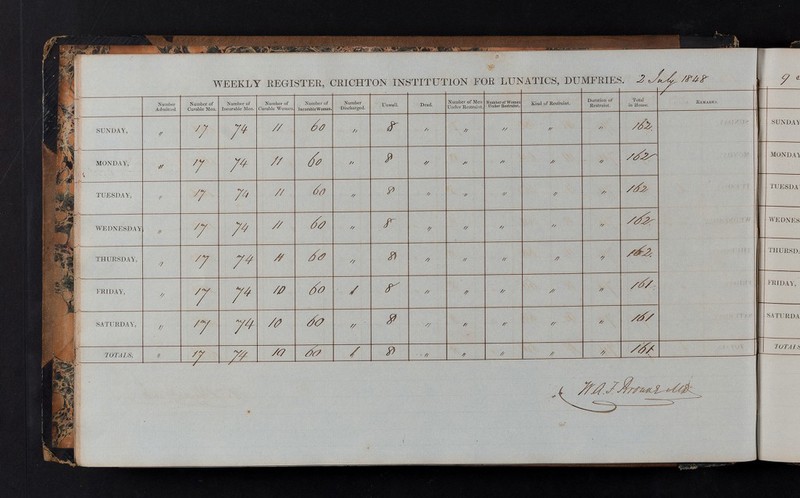 WEEKLY REGISTER, CRICHTON INSTITUTION FOR LUNATICS, DUMFRIES. 2 July 1848
Number Admitted. Number of Curable Men. Number of Incurable Men. Number of Curable Women. Number of Incurable Women. Number Discharged. Unwell. Dead. Number of Men Under Restraint. Number of Women Under Restraint. Kind of Restraint. Duration of Restraint. Total in House. Remarks.
SUNDAY, " 17 74 11 60 " 8 " " " " " 162
MONDAY, " 17 74 11 60 " 8 " " " " " 162
TUESDAY, " 17 74 11 60 " 8 " " " " " 162
WEDNESDAY, " 17 74 11 60 " 8 " " " " " 162
THURSDAY, " 17 74 11 60 " 8 " " " " " 162
FRIDAY, " 17 74 10 60 1 8 " " " " " 161
SATURDAY, " 17 74 10 60 " 8 " " " " " 161
TOTALS. " 17 74 10 60 1 8 " " " " " 161
W.A.F. Browne M.D.
9
SUNDAY
MONDAY
TUESDA
WEDNES
THURSD
FRIDAY,
SATURDA
TOTALS